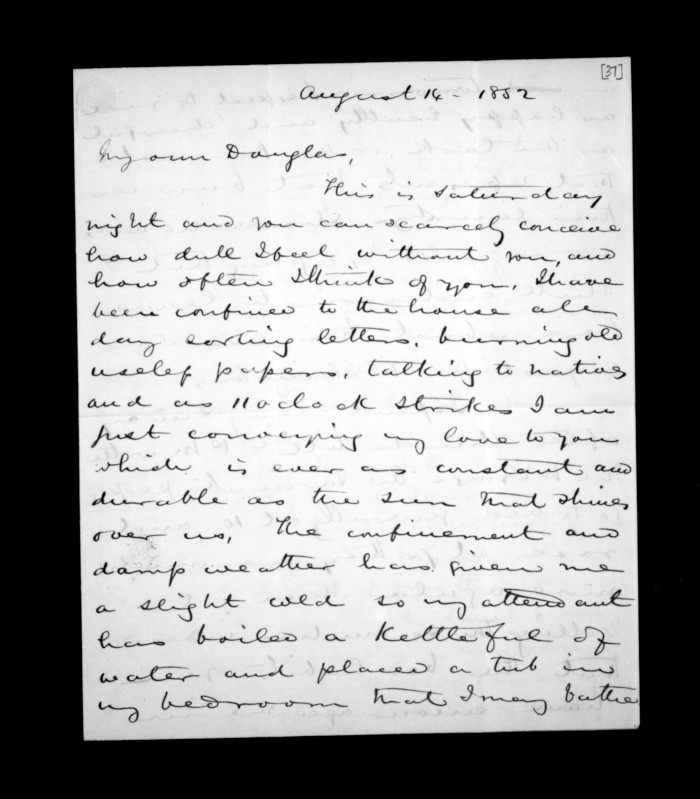 [37]
August 14 - 1852
My own Douglas,
This is Saturday
night and you can scarcely conceive
how dull I feel without you, and
how often I think of you. I have
been confined to the house all
day sorting letters, burning old
useless papers, talking to natives
and as 11 oclock strikes I am
just conveying my love to you
which is ever as constant and
durable as the sun that shines
over us. The confinement and
damp weather has given me
a slight cold so my attendant
has boiled a Kettleful of
water and placed a tub in
my bedroom that I may bathe